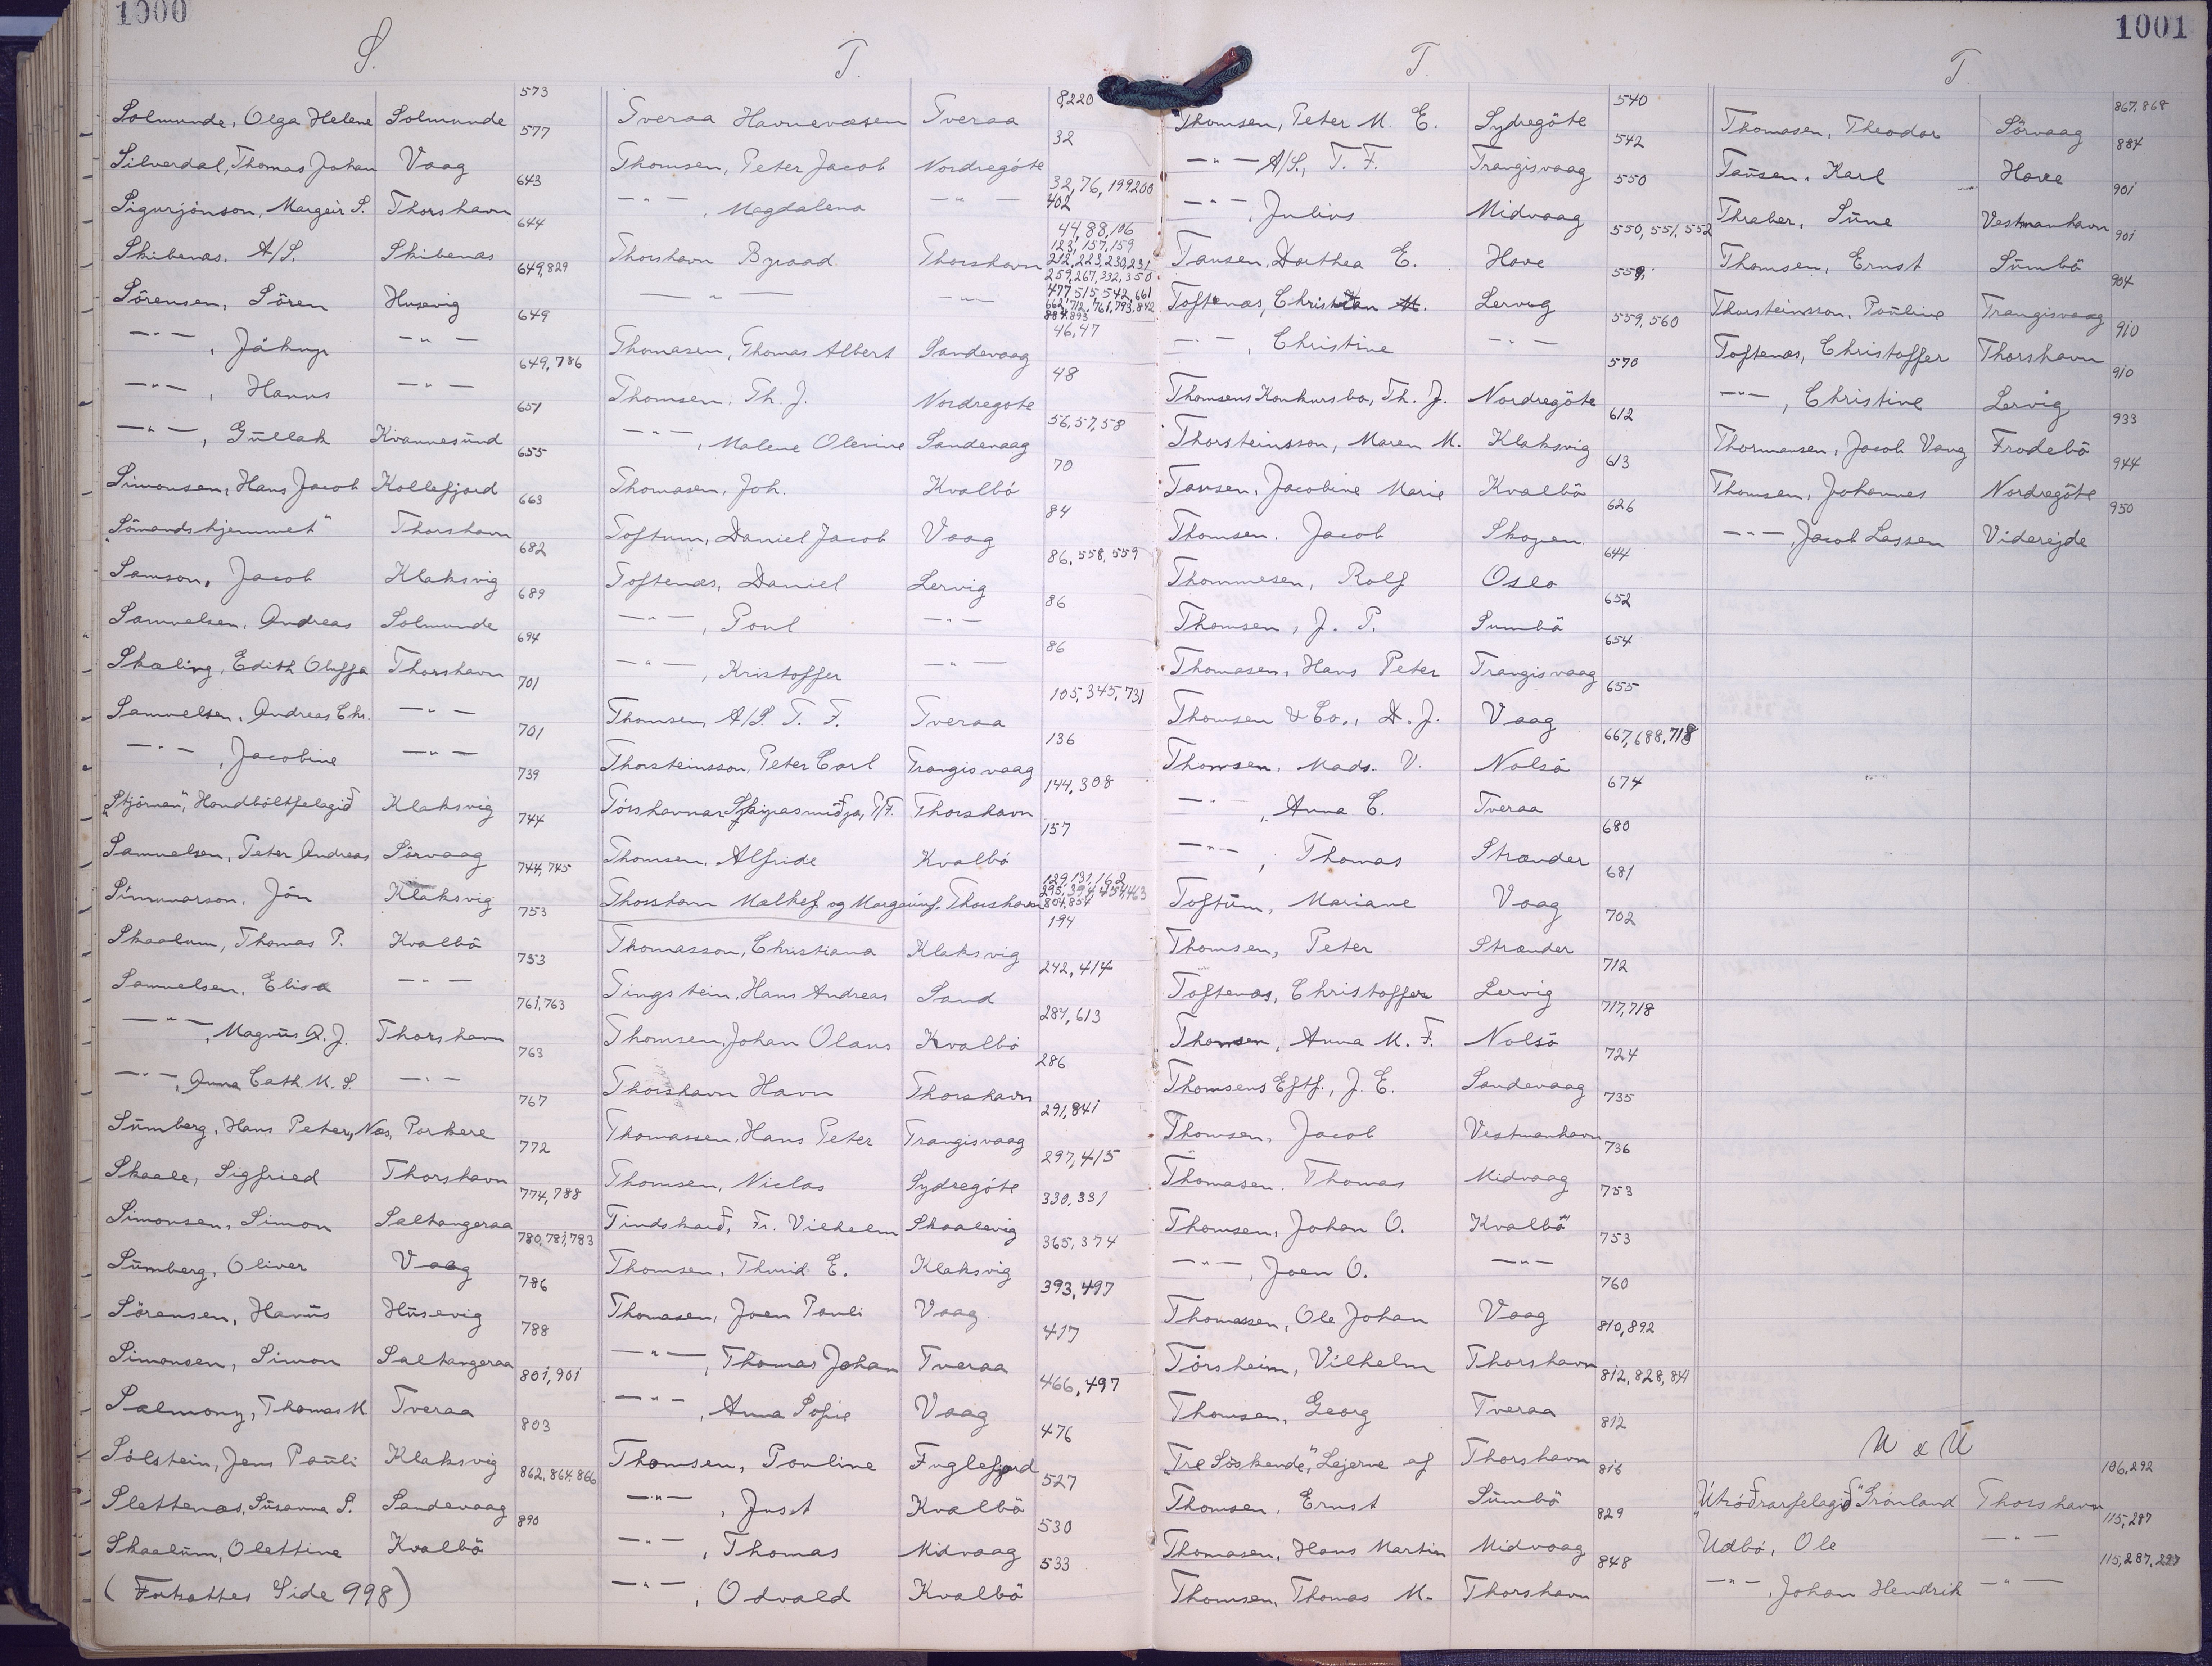 1000
1001
S.
Solmunde, Olga Helene Solmunde 573
Silverdal, Thomas Johan Vaag 577
Sigurjónson, Margeir S. Thorshavn 643
Skibenæs. A/S. Skibenæs 644
Sörensen, Sören Husevig 649,829
—"—, Jákup —"— 649
—"—, Hanus —"— 649,786
—"—, Gullak Kvannesund 651
Simonsen, Hans Jacob Kollefjord 655
„Sömandshjemmet" Thorshavn 663
Samson, Jacob Klaksvig 682
Samuelsen, Andreas Solmunde 689
Skæling, Edith Oluffa Thorshavn 694
Samuelsen, Andreas Chr. —"— 701
—"—, Jacobine —"— 701
„Stjörnan", Hondbóltfelagið Klaksvig 739
Samuelsen, Peter Andreas Sörvaag 744
Jón Klaksvig 744,745
Skaalum, Thomas P. Kvalbö 753
Samuelsen, Elisa —"— 753
—"—, Magnus A. J. Thorshavn 761,763
—"—, Anna Cath. M. S. —"— 763
Sumberg, Hans Peter, Næs, Porkere 767
Skaale, Sigfried Thorshavn 772
Simonsen, Simon Saltangeraa 774,788
Sumberg, Oliver Vaag 780,781,783
Sörensen, Hanus Husevig 786
Simonsen, Simon Saltangeraa 788
Salmony, Thomas M. Tveraa 801,901
Sólstein, Jens Pauli Klaksvig 803
Slettenæs, Susanna S. Sandevaag 862,864,866
Skaalum, Olettine Kvalbö 890
(Fortsættes Side 998)
T.
Tveraa Havnevæsen Tveraa 8220
Thomsen, Peter Jacob Nordregöte 32
—"—, Magdalena —"— 32,76,199200 402
Thorshavn Byraad Thorshavn 44,88,106
123,157,159
212,223,230,231
259,267,332,350
—"— —"— 477,515,542,661
662,712,761,793,842
884,893
Thomasen, Thomas Albert Sandevaag 46,47
Thomsen, Th. J. Nordregöte 48
—"—, Malene Olevine Sandevaag 56,57,58
Thomasen, Joh. Kvalbö 70
Toftum, Daniel Jacob Vaag 84
Toftenæs, Daniel Lervig 86,558,559
—"—, Poul —"— 86
—"—, Kristoffer —"— 86
Thomsen, A/S. T. F. Tveraa 105,345,731
Thorsteinsson, Peter Carl Trangisvaag 136
Tórshavnar Skipasmiðja, P/F. Thorshavn 144,308
Thomsen, Alfride Kvalbö 157
Thorshavn Mælkef. og Margarinf. Thorshavn 129,131,162
295,394,454,463
804,854
Thomasson, Christiana Klaksvig 194
Tingstein, Hans Andreas Sand 242,414
Thomsen, Johan Olaus Kvalbö 284,613
Thorshavn Havn Thorshavn 286
Thomassen, Hans Peter Trangisvaag 291,841
Thomsen, Niclas Sydregöte 297,415
Tindskarð, Fr. Vilhelm Skaalevig 330,331
Thomsen, Thurid E. Klaksvig 365,374
Thomasen, Joen Pauli Vaag 393,497
—"—, Thomas Johan Tveraa 417
—"—, Anna Sofie Vaag 466,497
Thomsen, Pouline Fuglefjord 476
—"—, Just Kvalbö 527
—"—, Thomas Midvaag 530
—"—, Odvald Kvalbö 533
T.
Thomsen, Peter M. E. Sydregöte 540
—"— A/S., T. F. Trangisvaag 542
—"—, Julius Midvaag 550
Tausen, Dorthea E. Hove 550,551,552
Toftenæs, Christian M. Lervig 559,
—"—, Christine —"— 559,560
Thomsens Konkursbo, Th. J. Nordregöte 570
Thorsteinsson, Maren M. Klaksvig 612
Tausen, Jacobine Marie Kvalbö 613
Thomsen, Jacob Skopen 626
Thommesen, Rolf Oslo 644
Thomsen, J. P. Sumbö 652
Thomasen, Hans Peter Trangisvaag 654
Thomsen & Co., D. J. Vaag 655
Thomsen, Mads. V. Nolsö 667,688,718
—"—, Anna C. Tveraa 674
—"—, Thomas Strænder 680
Toftum, Mariane Vaag 681
Thomsen, Peter Strænder 702
Toftenæs, Christoffer Lervig 712
Thomsen, Anna M. F. Nolsö 717,718
Thomsens Eftf., J. E. Sandevaag 724
Thomsen, Jacob Vestmanhavn 735
Thomasen, Thomas Midvaag 736
Thomsen, Johan O. Kvalbö 753
—"—, Joen O. —"— 753
Thomassen, Ole Johan Vaag 760
Tórsheim, Vilhelm Thorshavn 810,892
Thomsen, Georg Tveraa 812,828,841
„Tre Söskende", Lejerne af Thorshavn 812
Thomsen, Ernst Sumbö 816
Thomasen, Hans Martin Midvaag 829
Thomsen, Thomas M. Thorshavn 848
T.
Thomasen, Theodor Sörvaag 867,868
Tausen, Karl Hove 884
Thraber, Sune Vestmanhavn 901
Thomsen, Ernst Sumbö 901
Thorsteinsson, Pauline Trangisvaag 904
Toftenæs, Christoffer Thorshavn 910
—"—, Christine Lervig 910
Thormansen, Jacob Vang Frodebö 933
Thomsen, Johannes Nordregöte 944
—"—, Jacob Lassen Viderejde 950
U & Ú
„Útróðrarfelagið" Grönland Thorshavn 106,292
Udbö, Ole —"— 115,287
—"—, Johan Hendrik —"— 115,287,297